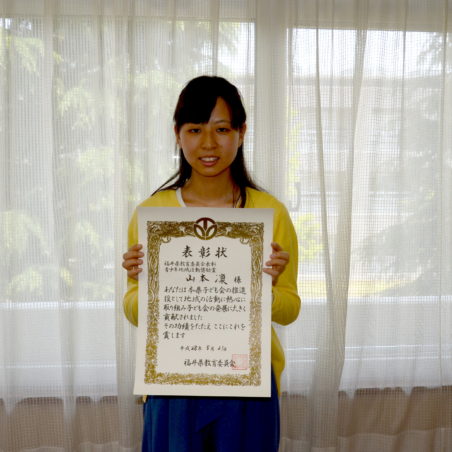 表彰状
福井県教育委員会表彰
青少年地域活動奨励賞
山本 凜 様
あなたは本県子ども会の推進
役として地域の活動に熱心に
取り組み子ども会の発展に大きく
貢献されました
その功績をたたえここにこれを
賞します
平成28年5月21日
福井県教育委員会